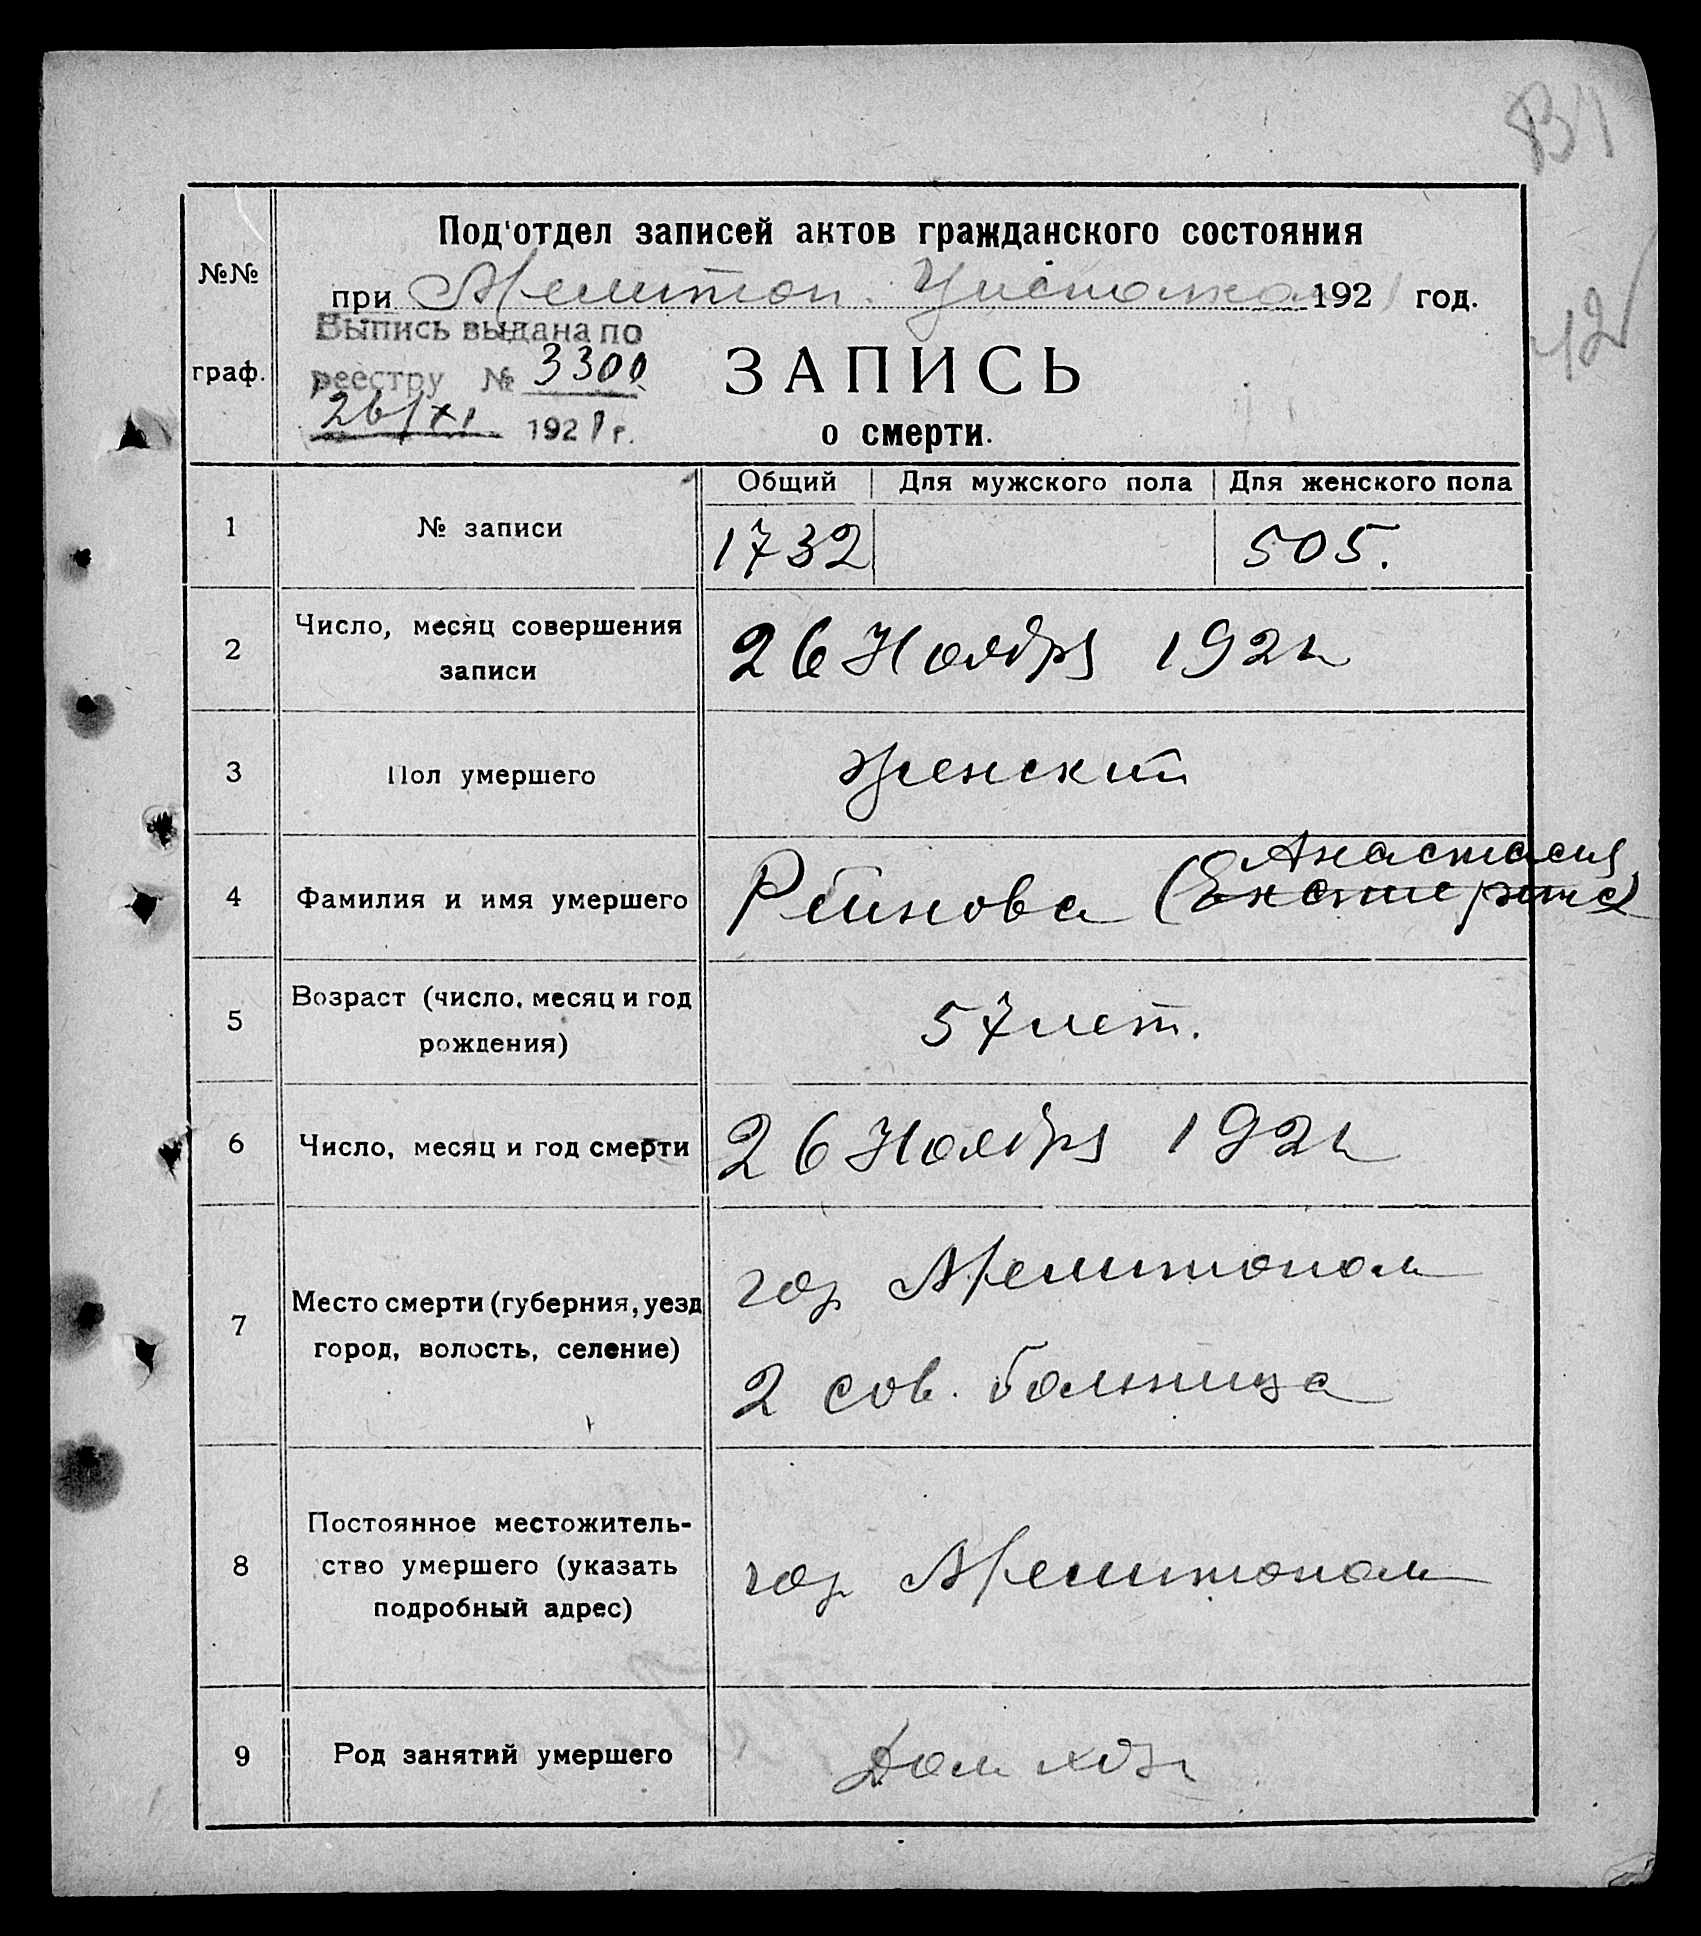 В1
№№
граф.
Под'отдел записей актов гражданского состояния
при Мелитоп. Уисполкоме 1921 год.
42
Выпись выдана по
реестру № 3300
26/XI 1921 г.
ЗАПИСЬ
о смерти.
Общий Для мужского пола Для женского пола
1 № записи 1732 505.
2 Число, месяц совершения
записи
26 Ноября 1921
3 Пол умершего женский
Анастасия
4 Фамилия и имя умершего
5 Возраст (число, месяц и год
рождения)
57 лет.
6 Число, месяц и год смерти 26 Ноября 1921
7 Место смерти (губерния, уезд
город, волость, селение)
гор Мелитополь
2 сов. больница
8 Постоянное местожитель-
ство умершего (указать
подробный адрес)
гор Мелитополь
9 Род занятий умершего Дом хоз